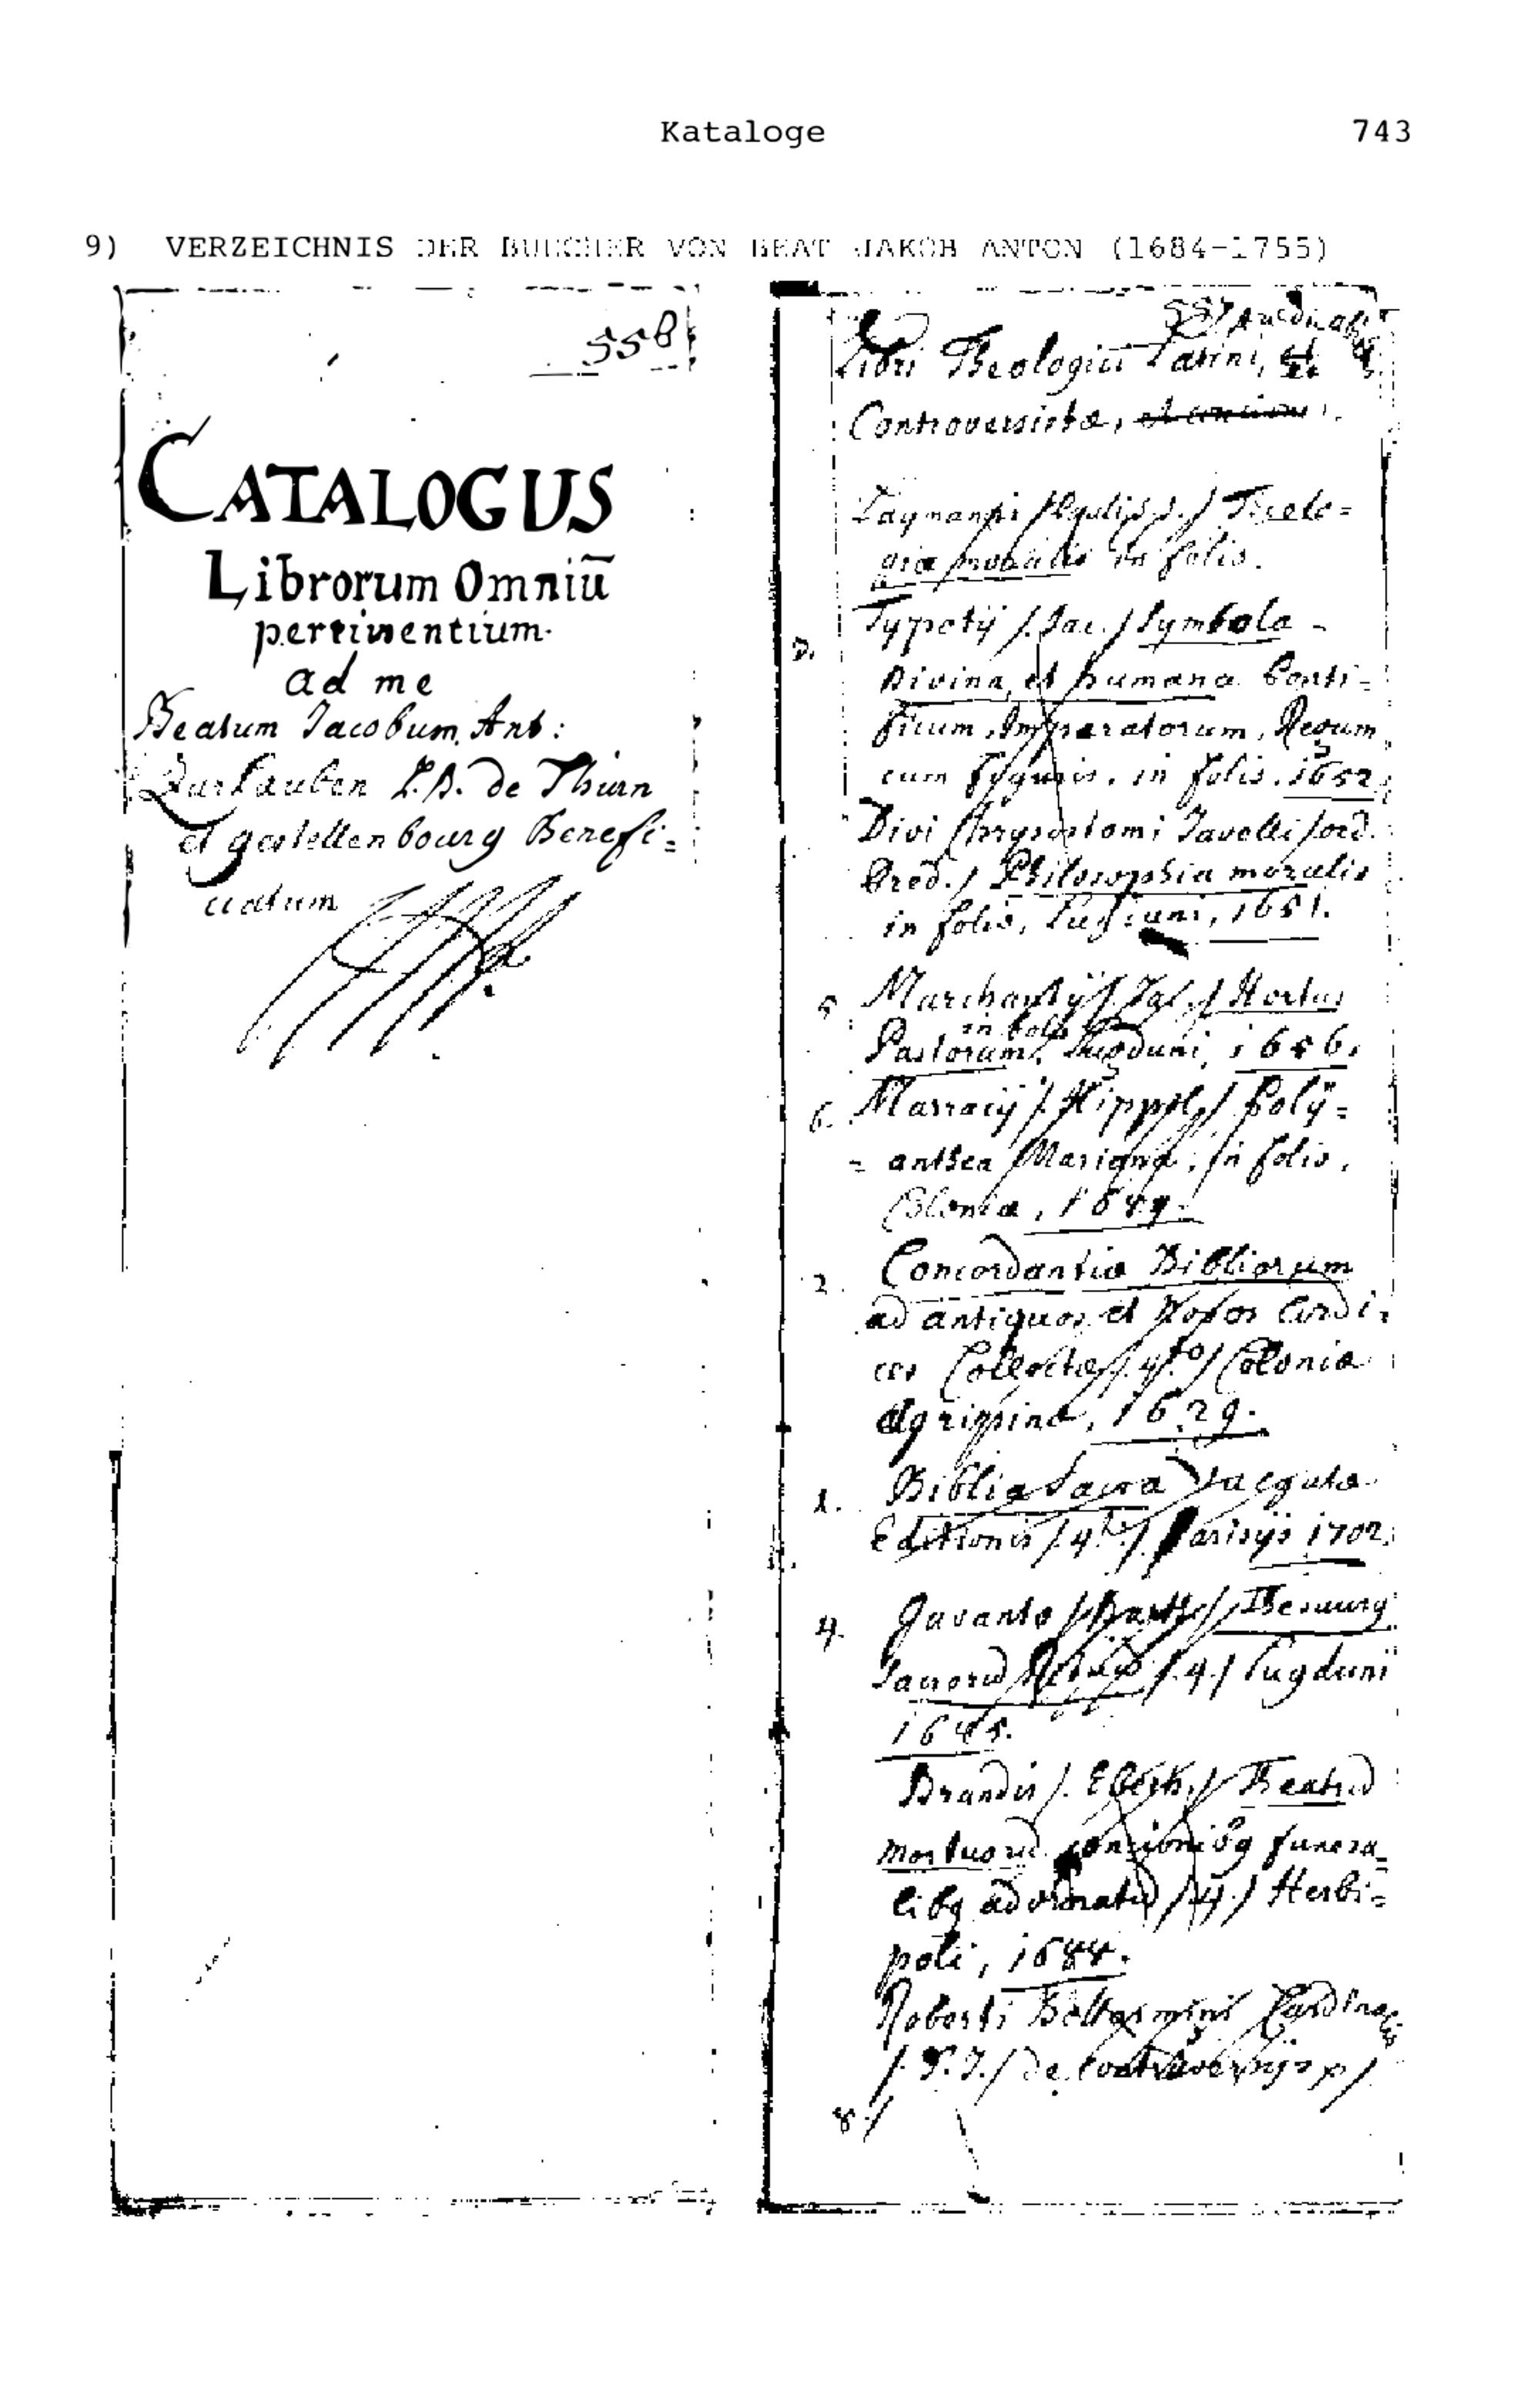 Kataloge 743
9) VERZEICHNIS DER BUECHER VON BEAT JAKOB ANTON (1684-1755)
558
CATALOGUS
Librorum Omniū
pertinentium
ad me
Beatum Jacobum Ant:
Zurlauben L.B. de Thurn
et gestellenbourg Benefi=
ciatum
557
Libri Theologici Latini, et
Controversistæ,
Laymanni / Theolo=
giæ moralis in folio.
D. Typotij /. Jac. / Symbola
Divina et humana Ponti=
ficum, Imperatorum, Regum
cum figuris. in folio. 1652
Divi Chrysostomi Javelli / ord.
Pred. / Philosophia moralis
in folio, Lugduni, 1651.
5. Marchantij /. Jac. / Hortus
in folio
Pastorum. Lugduni, 1656.
6. Marracij /. Hippol. / Polÿ=
=anthea Mariana, in folio,
Coloniæ, 1684.
2. Concordantiæ Bibliorum
ad antiquos et Novos Codi=
ces Collectæ /. 4to / Coloniæ
Agrippinæ, 1629.
1. Biblia Sacra Vulgatæ
Editionis /. 4to. /. Parisijs 1702.
4. Gavanto / Barth. / Thesaurg
Sacrorū Rituū /. 4. / Lugduni
1645.
Brandis /. / Theatrū
mortuorū concionibg funera=
libg adornatū / 4. / Herbi=
poli, 1644.
Roberti Bellarmini Cardinalis
/. S.J. / de Controversijs
8. /